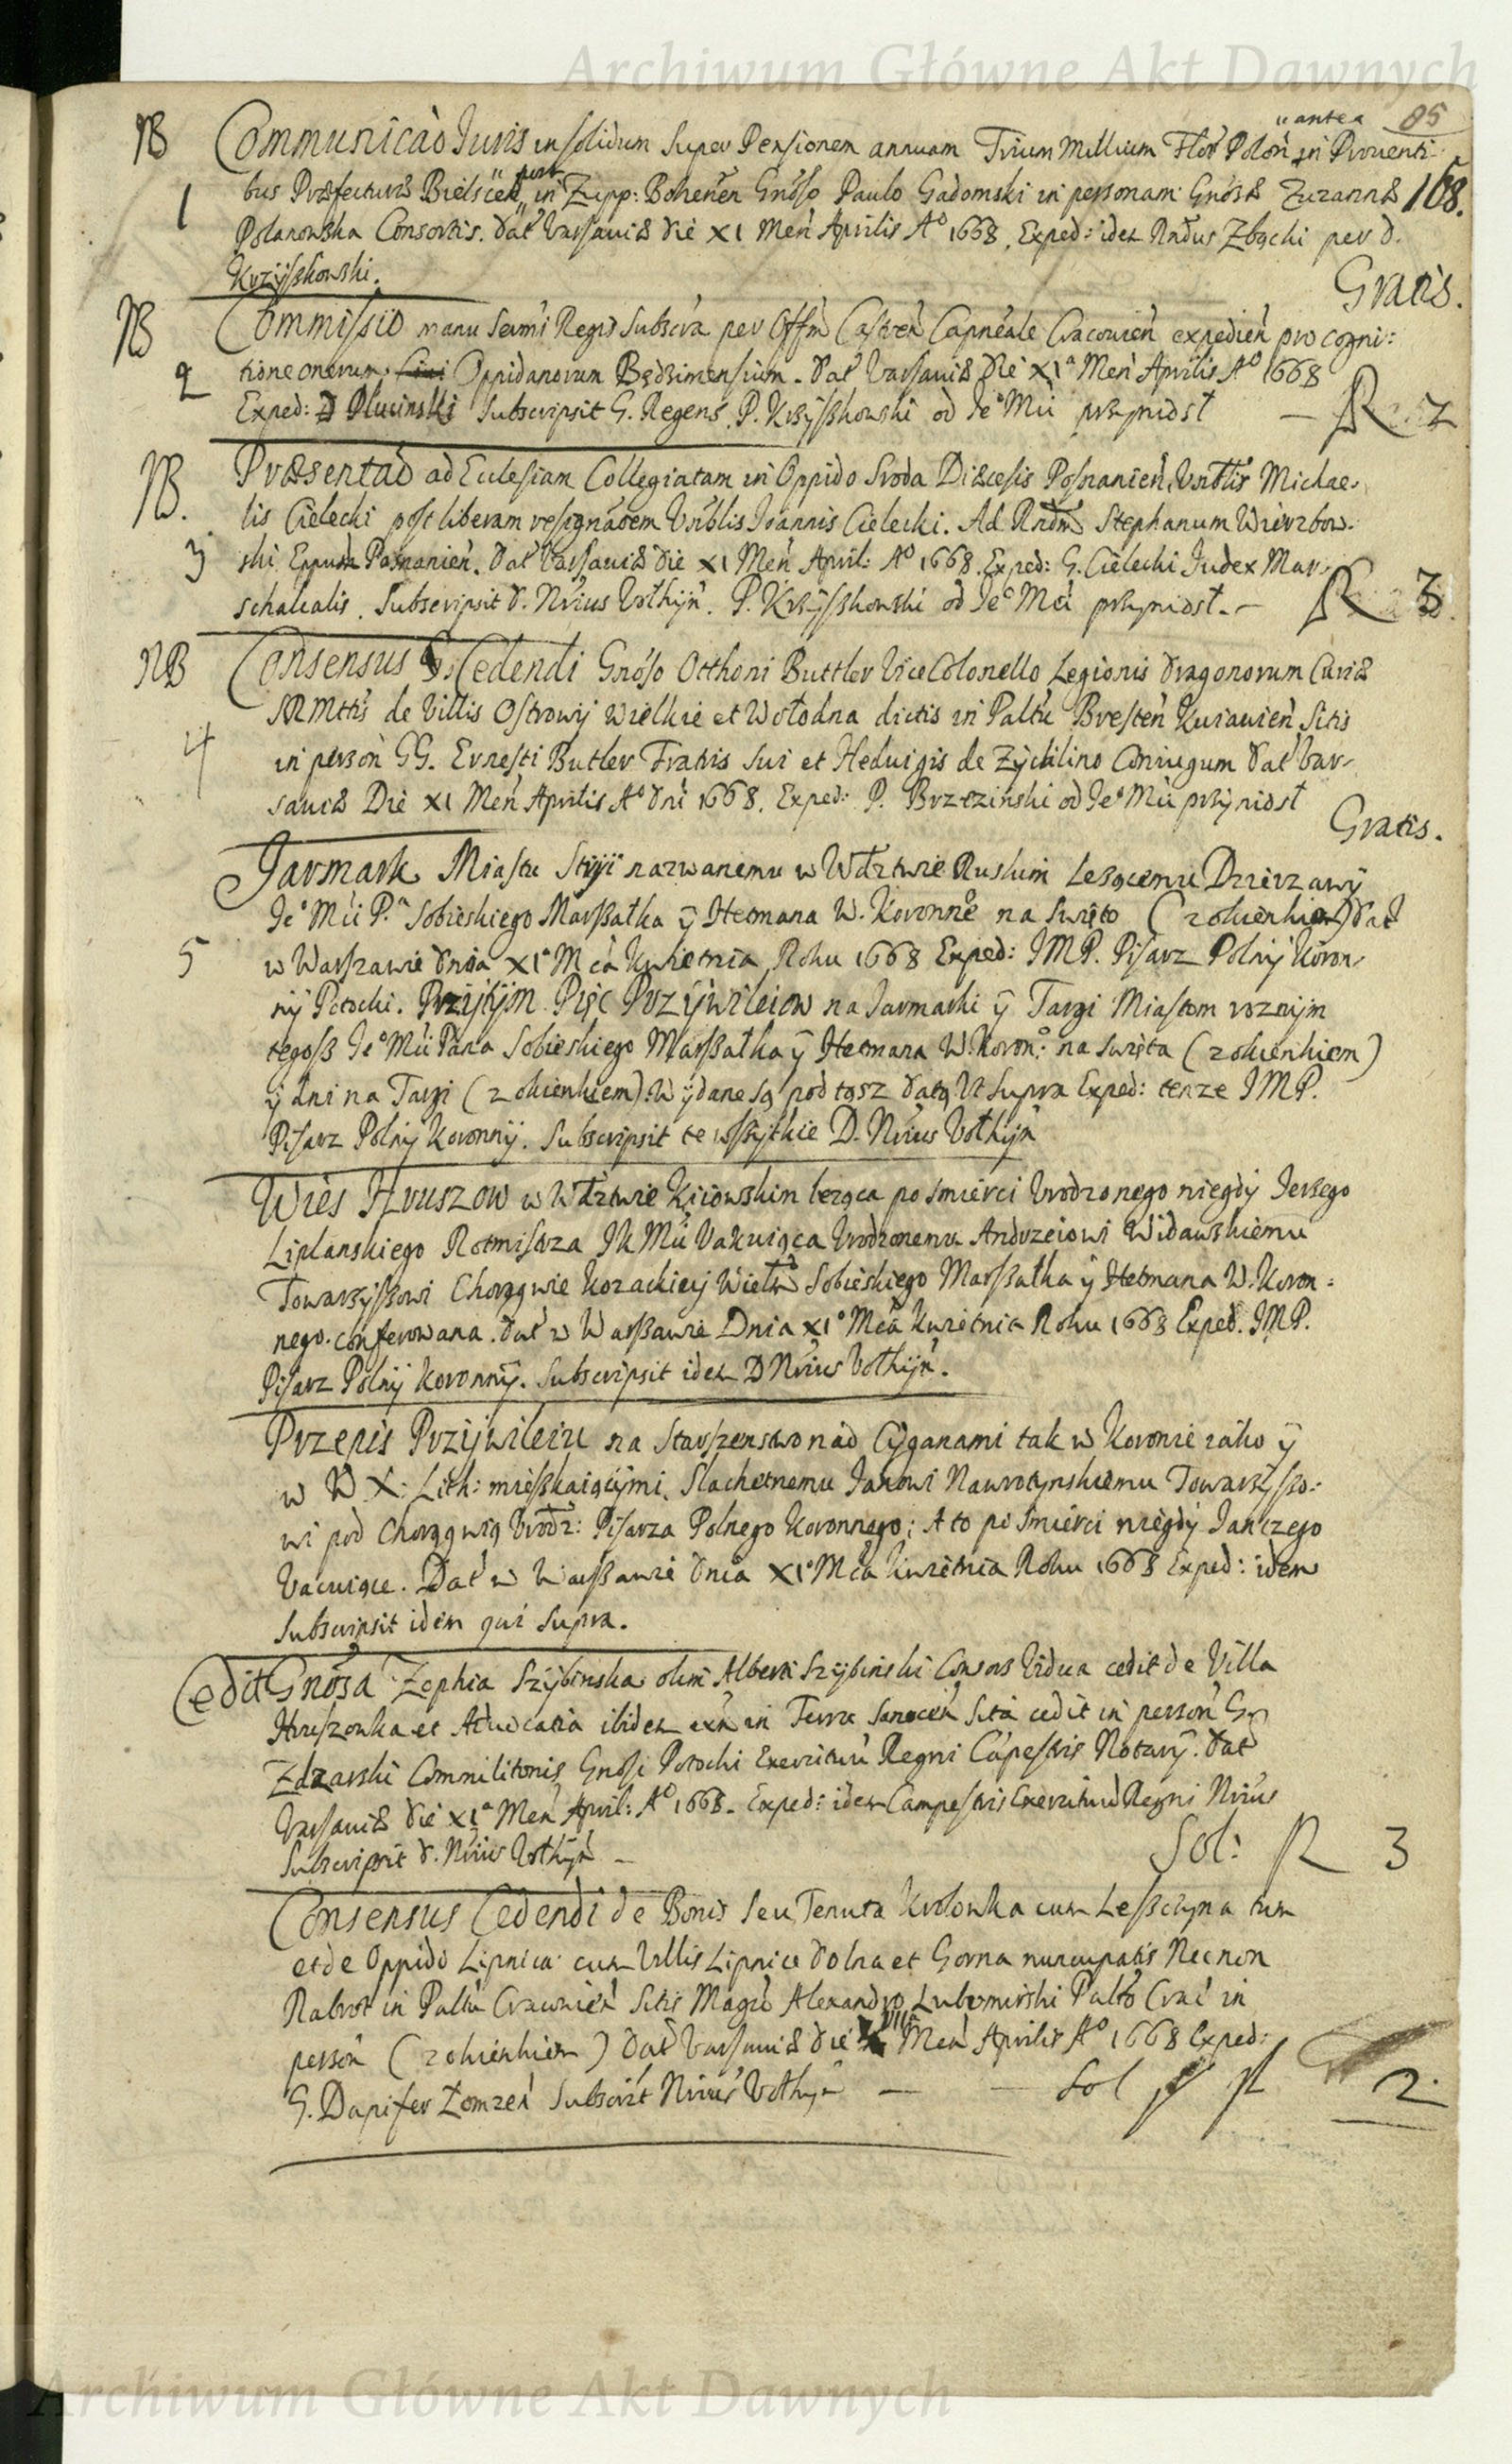 Archiwum Główne Akt Dawnych
85
NB Communicaõ Iuris in solidum super Pensionem annuam Trium Millium Flor Polon „antea in Prouenti-
1 bus Præfecturæ Bielscen „post in Zupp: Bohenen Gnoso Paulo Gadomski in personam Gnosæ Zuzannæ 168.
Polanowska Consortis. Dat Varsauiæ die XI Men Aprilis A° 1668. Exped: idem Rndus Zbąchi per D.
Krzÿszkowski.
Gratis.
NB Commissio manu Sermi Regis Subscra per Offm Castren Capneale Cracouien expedien pro cogni:
2 tione onerum Oppidanorum Będzimensium. Dat Varsauiæ Die XIª Men Aprilis A° 1668
Exped: D Plucinski Subscripsit G. Regens. P. Krzÿszkowski od Je° Mci przÿniosł — R 2
NB. Præsentaõ ad Ecclesiam Collegiatam in Oppido Sroda Diæcesis Posnanien, Vrblis Michae-
lis Cielecki post liberam resignãoem Vrblis Joannis Cielecki. Ad Rndm Stephanum Wierzbow-
3 ski Eppum Posnanien. Dat Varsauiæ die XI Men April: A° 1668. Exped: G. Cielecki Judex Mar-
schalcalis. Subscripsit D. Nrius Vothÿn. P. Krzÿszkowski od Je° Mci przyniosł. — R 3
NB Consensus Cedendi Gnoso Otthoni Buttler Vice Colonello Legionis Dragonorum Curiæ
SRMttis de Villis Ostrowÿ Wielkie et Wołodna dictis in Paltu Bresten Kuiauien Sitis
4 in person GG. Ernesti Butler Fratris sui et Heduigis de Zÿchlino Coniugum Dat Var-
sauiæ Die XI Men Aprilis A° Dni 1668. Exped: P. Brzezinski od Je° Mci przÿniosł
Gratis.
Jarmark Miastu Strÿi nazwanemu w Wdztwie Ruskim Leżącemu Dzierzawÿ
Je° Mci P.ª Sobieskiego Marszałka ÿ Hetmana W. Koronne° na Swięto (z okienkiem) Dat
5 w Warszawie Dnia XI° Mca Kwietnia Roku 1668 Exped: JMP. Pisarz Polnÿ Koron-
nÿ Potocki. Przÿtÿm Pięc Przÿwileiow na Jarmarki ÿ Targi Miastom roznÿm
tegosz Je° Mci Pana Sobieskiego Marszałka ÿ Hetmana W. Koron:° na Swięta (z okienkiem)
ÿ dni na Targi (z okienkiem). Wÿdane są pod tąsz datą Vt Supra Exped: tenze JMP.
Pisarz Polnÿ Koronnÿ. Subscripsit te wszÿtkie D. Nrius Vothÿn
Wies Hruszow w Wdztwie Kiiowskim leząca po smierci Vrodzonego niegdÿ Jerzego
Liplanskiego Rotmistrza JKMci Vakuiąca Vrodzonemu Andrzeiowi Widawskiemu
Towarzÿszowi Chorągwie Kozackieÿ Wielm Sobieskiego Marszałka ÿ Hetmana W. Koron:
nego. conferowana. Dat w Warszawie Dnia XI° Mca Kwietnia Roku 1668 Exped. JMP.
Pisarz Polnÿ Koronnÿ. Subscripsit idem D Nrius Vothÿn.
Przepis Przÿwileiu na Starszenstwo nad Cÿganami tak w Koronie iako ÿ
w W X: Lith: mieszkaiącÿmi, Slachetnemu Janowi Nawrotynskiemu Towarzÿszo:
wi pod Chorągwią Vrodz: Pisarza Polnego Koronnego; A to po smierci niegdÿ Janczego
Vacuiące. Dat w Warszawie Dnia XI° Mca Kwietnia Roku 1668 Exped: idem
Subscripsit idem qui supra.
Cedit Gnosa Zophia Szÿbinska olim Alberti Szÿbinski Consors Vidua cedit de Villa
Hruszowka et Aduocatia ibidem in Terra Sanocen Sita cedit in person G
Zdzarski Commilitonis Gnosi Potocki Exercituu Regni Capestris Notarÿ. Dat
Varsauiæ die XIª Men April: A° 1668. Exped: idem Campestris Exercituu Regni Nrius
Subscripsit D. Nrius Vothÿn —
Sol: R 3
Consensus Cedendi de Bonis Seu Tenuta Krolowka cum Leszczyna tum
et de Oppido Lipnica cum Villis Lipnice Dolna et Gorna nuncupatis Necnon
Rabrot in Paltu Cracouien Sitis Magco Alexandro Lubomirski Palto Crac in
person (z okienkiem) Dat Varsauiæ die VII Men Aprilis A° 1668 Exped:
G. Dapifer Łomzen Subscrit Nrius Vothyn — — Sol R 2.
Archiwum Główne Akt Dawnych